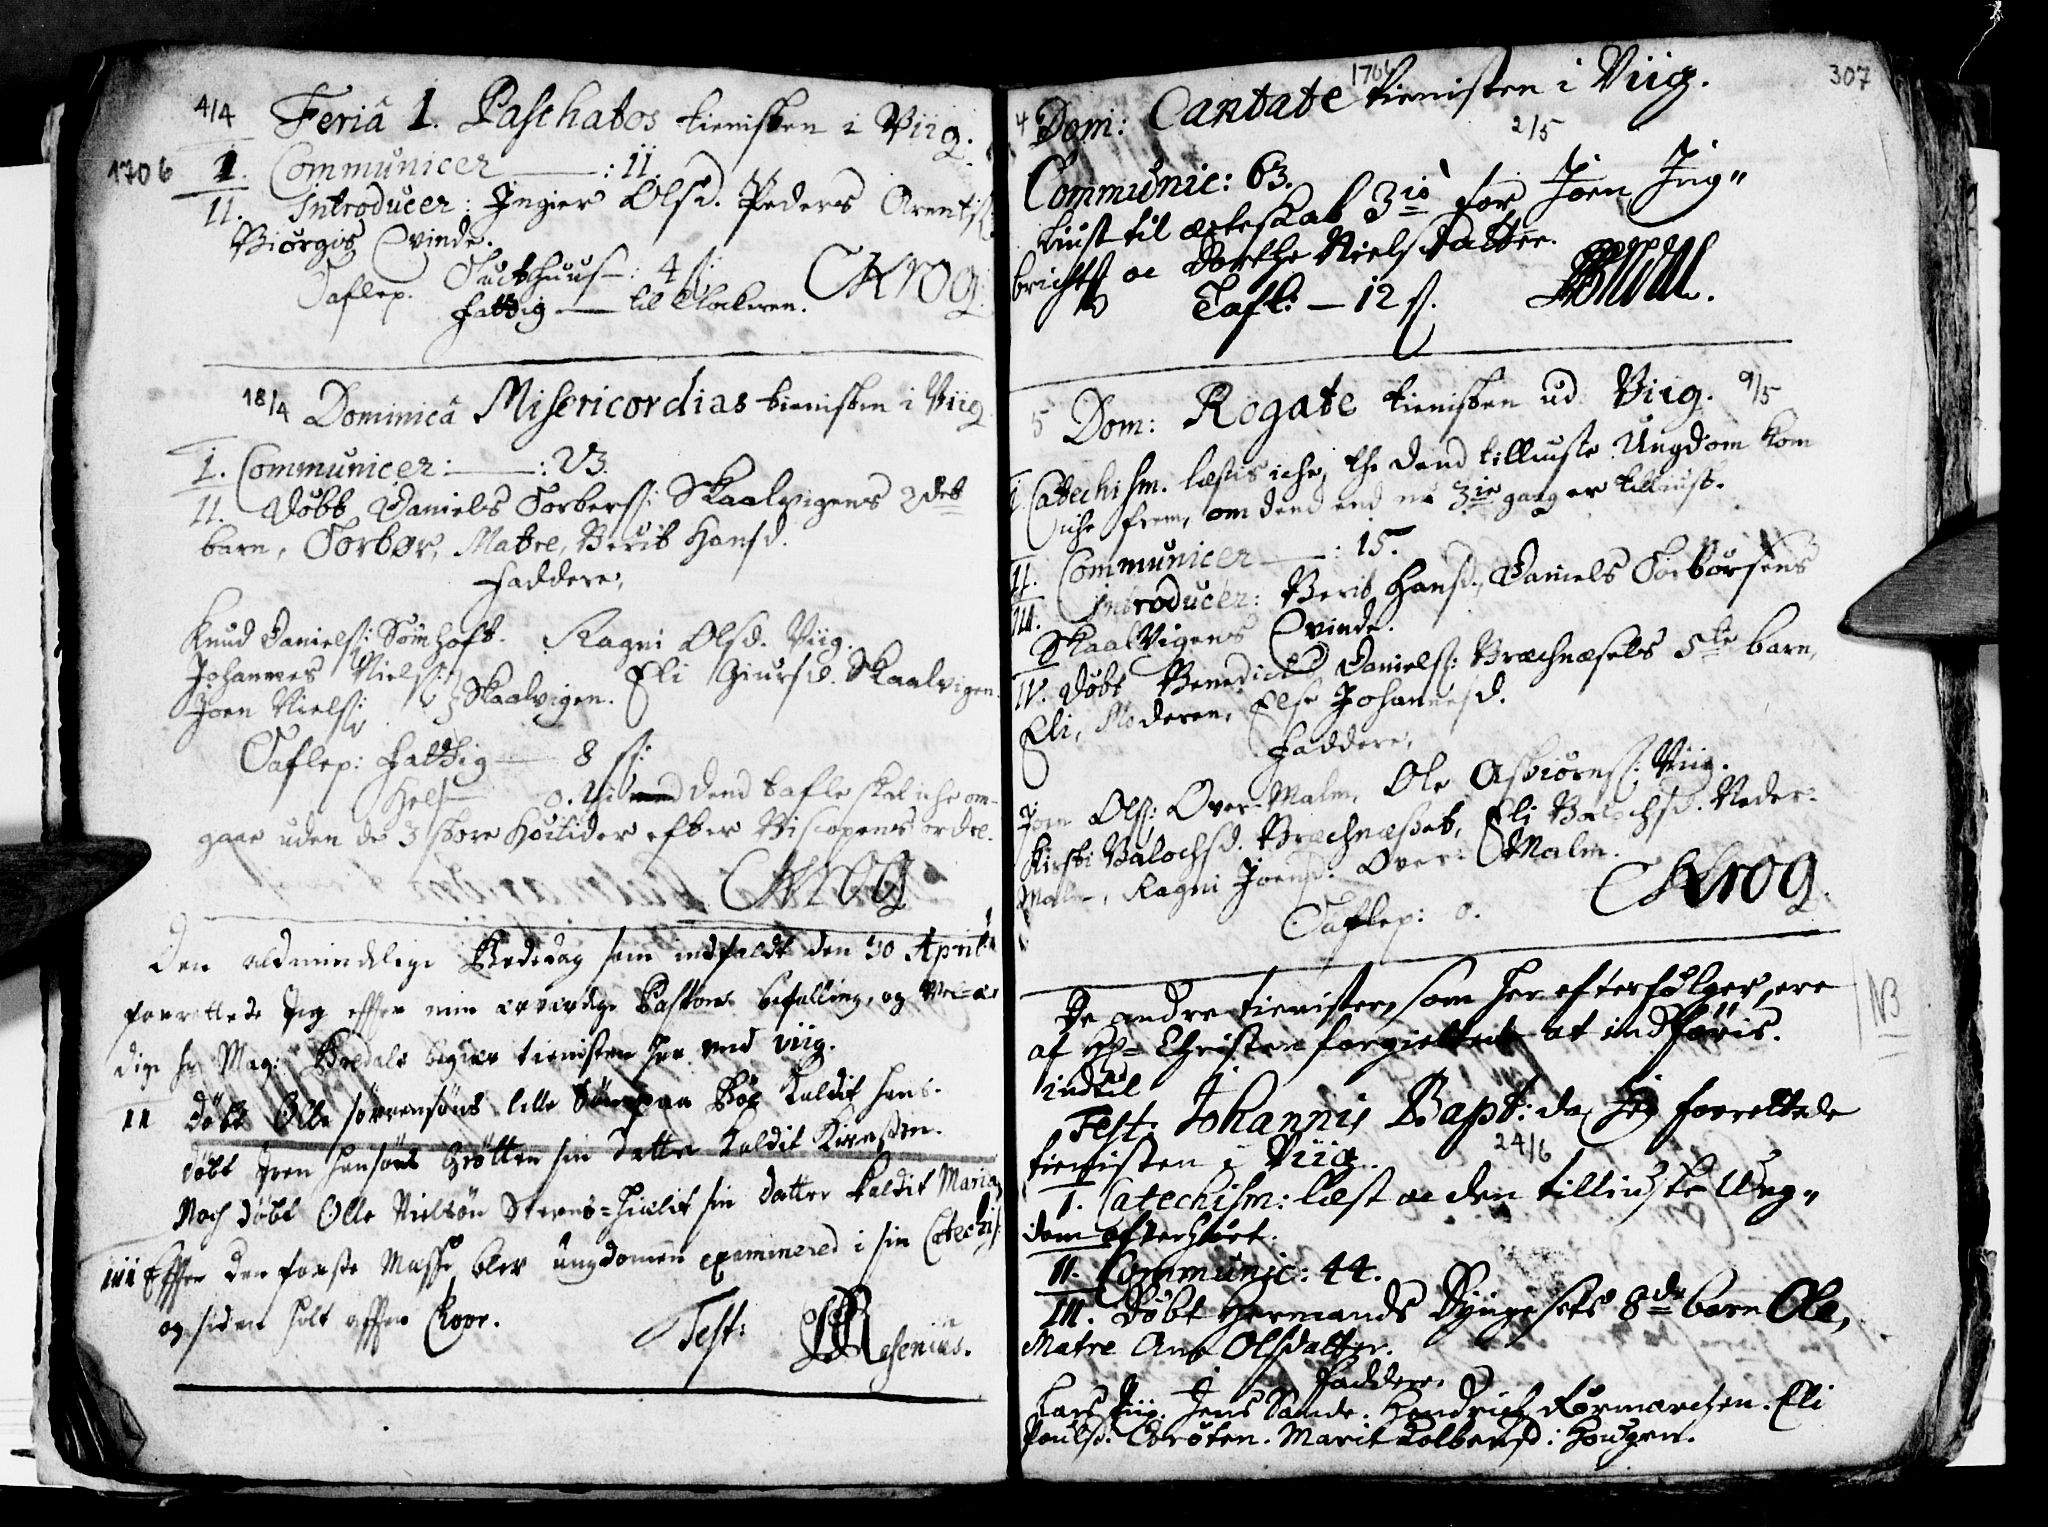 4/4 Feriâ 1. Paschatos tienisten i Viig.
1706 I. Communicer ——— : 11.
II. Introducer: Ingier Olsd. Peders Arents:
Biørgis Qvinde.
Taflep. Tuckthuus —: 4 ß:
Fattig —— til Klockeren. CKrog.
18/4 Dominicâ Misericordias tienisten i Viig
I. Communicer: ——— : 23.
II. Døbt Daniels Torberss: Skaalvigens 2det
barn, Torbør, Matre, Berit Hansd.
Faddere,
Knud Daniels: Sømhoft. Ragni Olsd. Viig.
Johannes Niels: Eli Giursd. Skaalvigen.
Joen Niels: } Skaalvigen.
Taflep: Fattig —— 8 ß:
Hels— 0. dend tafle skal iche om-
gaae uden de 3 store Høitider efter Biscopens ordre.
CKrog
Den aldmindelige Bededag som indfaldt den 30 April
forrettede Jeg effter min ærværdige Pastors befalling, og Vel-ær
dige hr Mag: Bredals begiær tienisten her ved Viig.
II Døbt Olle Sørrensøns lille Søn paa Bøg kaldit Hans.
døbt Iren Hansøns Grøtten sin datter kaldit Kirsten.
Noch døbt Olle Nielsøn Steens=hialit sin datter kaldit Maria
III Effter den første Messe blev ungdomen examinered i sin Catechis
og siden holt offter Choor.
Test: Resenius.
1706 307
4 Dom: Cantate tienisten i Viig.
2/5
Communic: 63.
Liust til ægteskab 3die for Joen Ing"
brichts: oc Dorthe Niels datter.
Tafl: — 12 ß.
5 Dom: Rogate tienisten ud Viig. 9/5
I Catechism. læstis iche, thi dend tilliuste Ungdom kom
iche frem, om dend end nu 3die gang er tilliust.
II. Communicer —— : 15.
III. Introducer: Berit Hansd., Daniels Torbørsens
Skaalvigens Qvinde.
IV. Døbt Benedict Daniels: Brachnæsets 5te barn,
Eli, Moderen, Else Johannesd.
Faddere,
Joen Ols: Over-Malm, Ole Asbiørns: Viig.
Kirsti Balochsd. Brachnæset, Eli Balochsd. Neder-
Malm, Ragni Joensd: Over-Malm.
CKrog.
Taflep: 0.
De andre tienister, som her efterfølger, ere NB
af Hr= Christen forgiettet at indføris.
indtil
Fest. Johannis Bapt: da Jeg forrettede
tienisten i Viig. 24/6
I. Catechism: læst oc den tilliuste Ung"
dom efterhørt.
II. Communic: 44.
III. Døbt Hermands Dyngesets 8de barn Ole,
Matre Ane Olsdatter.
Faddere.
Lars Viig. Jens Sande. Hendrich Formarchen. Eli
Poulsd. Grøten. Marit Kolbensd: Hougen.